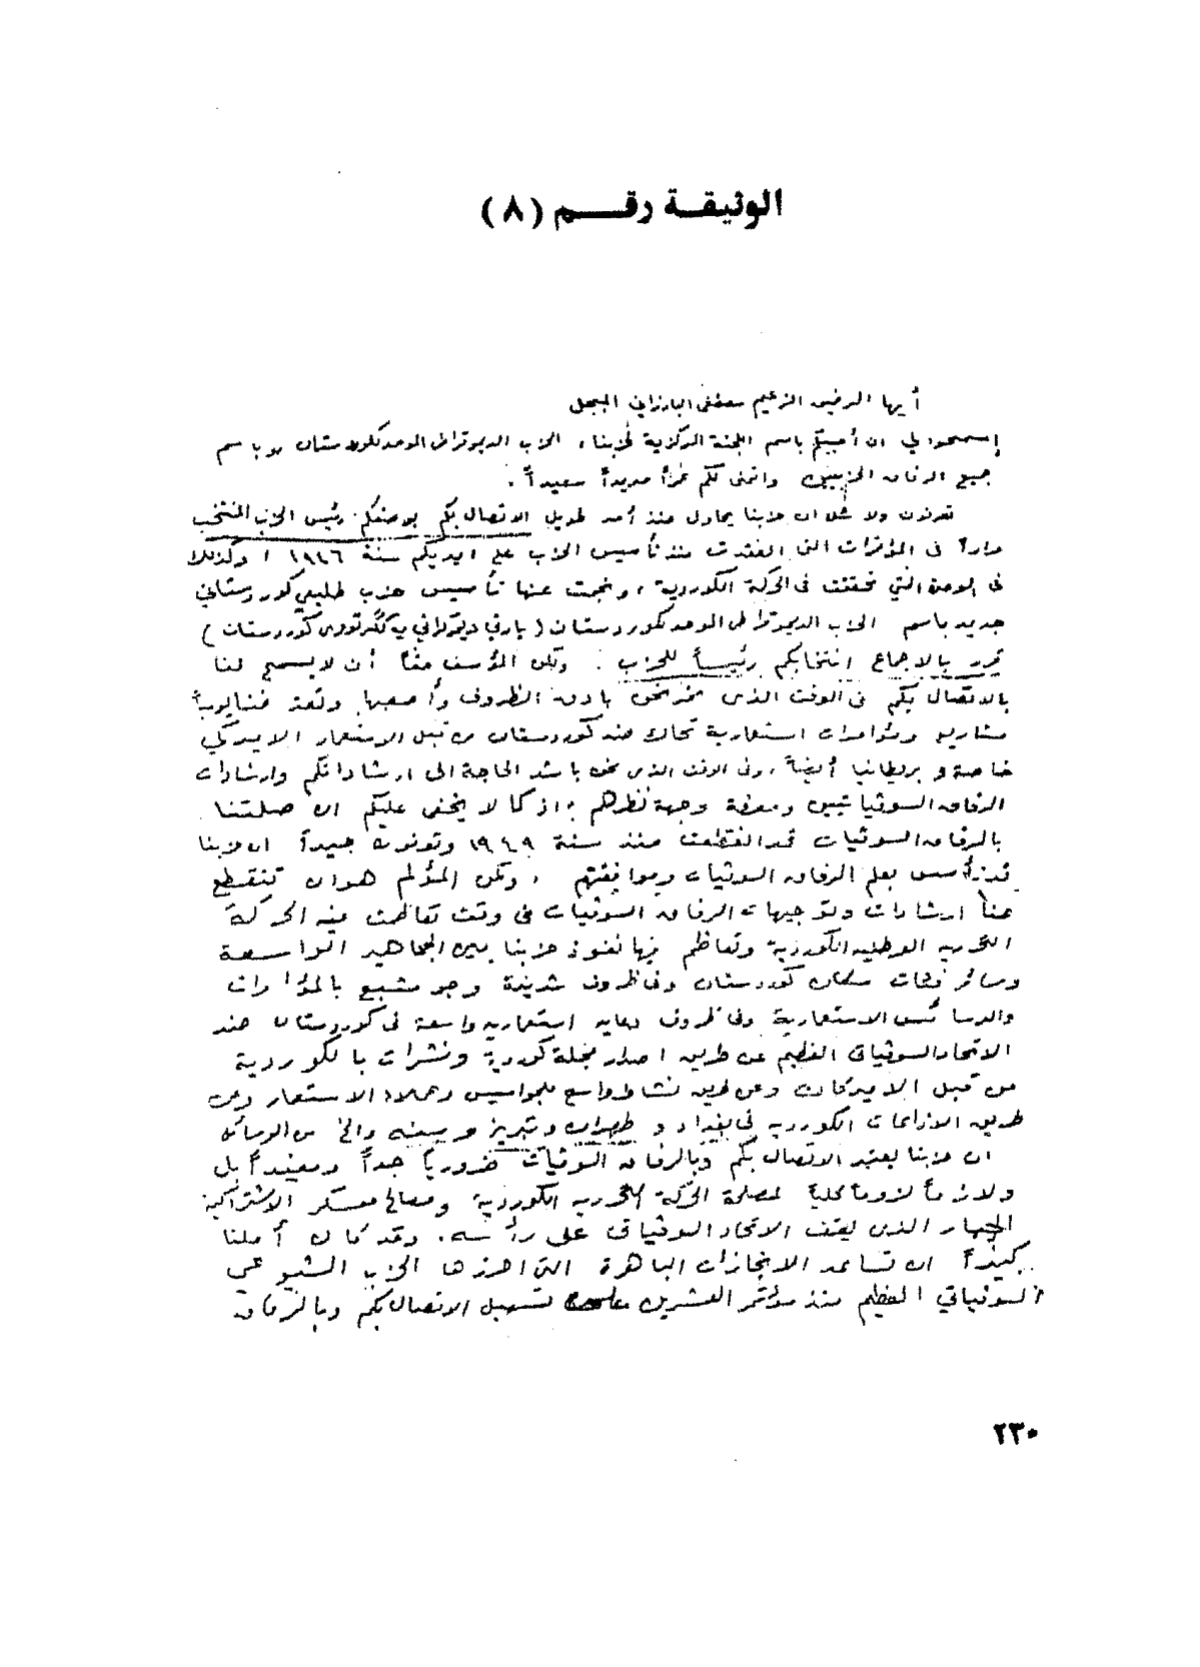 الوثيقة رقم (٨)
أيها الرفيق الزعيم مصطفى البارزاني المبجل
إسمحوا لي ان أحييكم باسم اللجنة المركزية لحزبنا، الحزب الديموقراطي الموحد لكوردستان وباسم
جميع الرفاق الحزبيين واتمنى لكم عمراً مديداً سعيداً .
تعرفون ولا شك ان حزبنا يحاول منذ أمد طويل الاتصال بكم بوصفكم رئيس الحزب المنتخب
مراراً فى المؤتمرات التى انعقدت منذ تأسيس الحزب على ايديكم سنة ١٩٤٦ وكذلك
فى الوحدة التي تحققت فى الحركة الكوردية ، ونجمت عنها تأسيس حزب طليعي كوردستاني
جديد باسم الحزب الديموقراطى الموحد لكوردستان (پارتي ديموكراتي يەكگرتووى كوردستان)
تقرر بالاجماع انتخابكم رئيساً للحزب . ولكن المؤسف حقاً أن لا يسمح لنا
بالاتصال بكم فى الوقت الذى نمر نحن بادق الظروف وأصعبها ولقمة
مشاريع ومؤامرات استعمارية تحاك ضد كوردستان من قبل الاستعمار الاميركي
خاصة و بريطانيا أيضاً ، وفى الوقت الذى نحن باشد الحاجة الى ارشاداتكم وارشادات
الرفاق السوڤياتيين ومعرفة وجهة نظرهم ، اذ كما لا يخفى عليكم ان صلتنا
بالرفاق السوڤيات قد انقطعت منذ سنة ١٩٤٩ وتعرفون جيداً ان حزبنا
قد تأسس بعلم الرفاق السوڤيات وموافقتهم ، ولكن المؤلم هو ان تنقطع
عنا ارشادات وتوجيهات الرفاق السوڤيات فى وقت تعاظمت فيه الحركة
التحررية الوطنية الكوردية وتعاظم فيها نفوذ حزبنا بين الجماهير الواسعة
وسائر فئات سكان كوردستان وفى ظروف شديدة وجو مشبع بالمؤامرات
والدسائس الاستعمارية وفى ظروف دعاية استعمارية واسعة فى كوردستان ضد
الاتحاد السوڤياتى العظيم عن طريق اصدار مجلة كوردية ونشرات بالكوردية
من قبل الاميركان وعن طريق نشاط واسع للجواسيس وعملاء الاستعمار وعن
طريق الاذاعات الكوردية في بغداد و طهران و تبريز و سنه والخ من الوسائل
ان حزبنا يعتبر الاتصال بكم وبالرفاق السوڤيات ضرورياً جداً ومفيداً بل
ولازماً لزوماً كلياً لمصلحة الحركة التحررية الكوردية ومصالح معسكر الاشتراكية
الجبار الذى يقف الاتحاد السوڤياتى على رأسه . وقد كان أملنا
كبيراً ان تساعد الانجازات الباهرة التى احرزها الحزب الشيوعي
السوڤياتي العظيم منذ مؤتمر العشرين لتسهيل الاتصال بكم وبالرفاق
٢٣٠